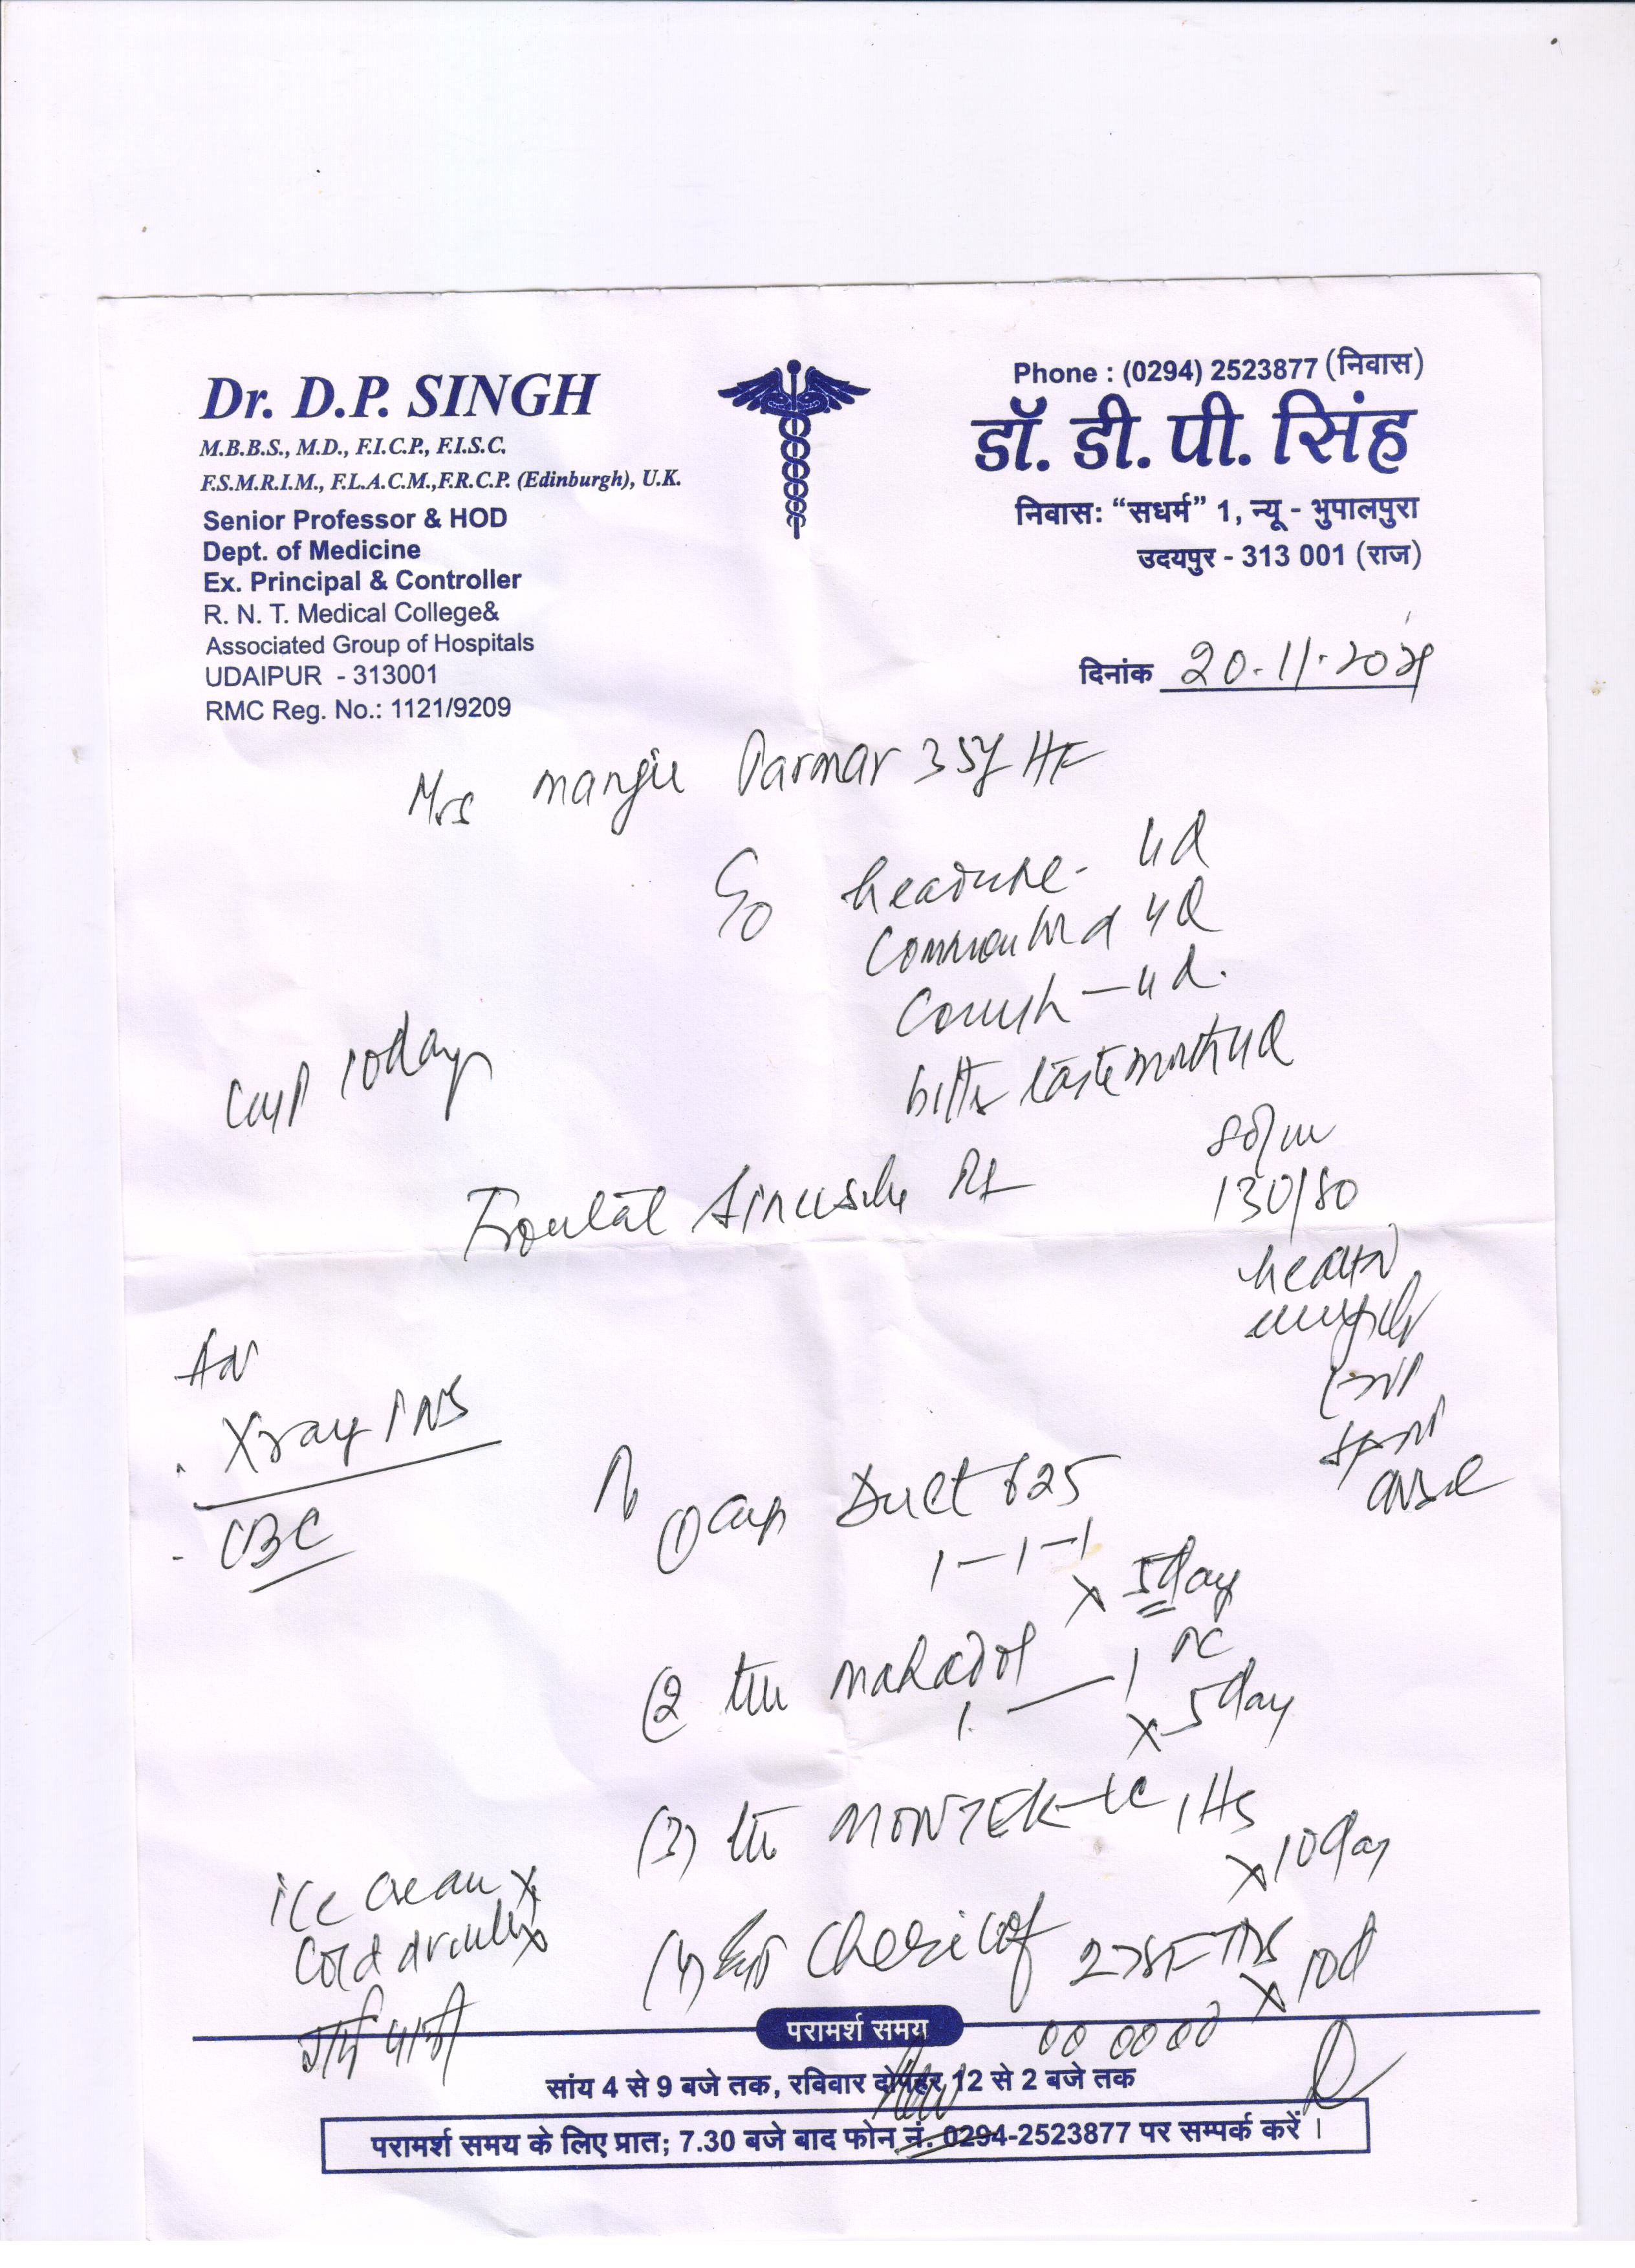 Dr. D.P. SINGH
M.B.B.S., M.D., F.I.C.P., F.I.S.C.
F.S.M.R.I.M., F.L.A.C.M.,F.R.C.P. (Edinburgh), U.K.
Senior Professor & HOD
Dept. of Medicine
Ex. Principal & Controller
R. N. T. Medical College&
Associated Group of Hospitals
UDAIPUR - 313001
RMC Reg. No.: 1121/9209
Phone : (0294) 2523877 (निवास)
डॉ. डी. पी. सिंह
निवास: “सधर्म” 1, न्यू - भुपालपुरा
उदयपुर - 313 001 (राज)
दिनांक 20.11.
Mrs Parmar 35y HF
headache - 4d
4d
Cough - 4d.
bitter taste mouth 4d
10 day
80/m
Frontal Sinusitis Rt
130/80
Adv
X ray PNS
CBC
① Cap Duct 625
1-1-1
x 5 day
② 
1 — 1
x 5 day
(3) MONTEK-LC 1 HS
x 10 day
ice cream x
Cold drinks x
गर्म पानी
(4) 2 TSF TDS
x 10d
परामर्श समय
सांय 4 से 9 बजे तक, रविवार दोपहर 12 से 2 बजे तक
परामर्श समय के लिए प्रात; 7.30 बजे बाद फोन नं. 0294-2523877 पर सम्पर्क करें ।